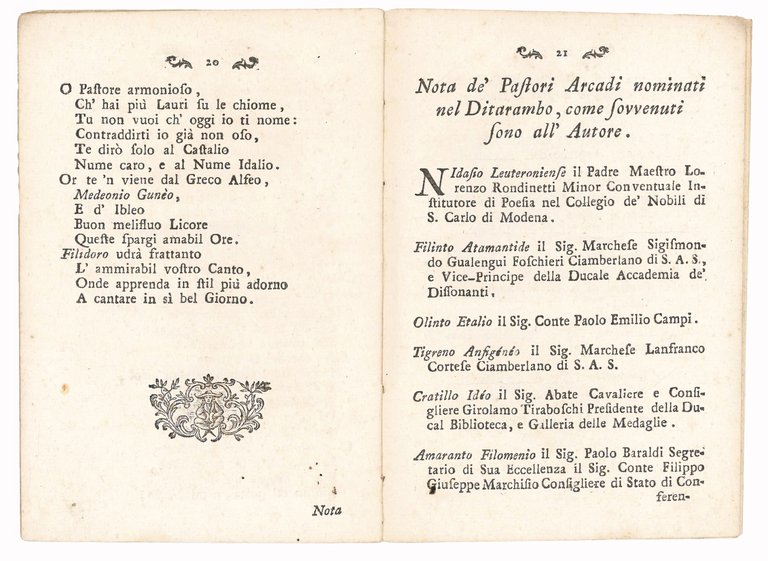 20
O Paſtore armonioſo,
Ch' hai più Lauri ſu le chiome,
Tu non vuoi ch' oggi io ti nome:
Contraddirti io già non oſo,
Te dirò ſolo al Caſtalio
Nume caro, e al Nume Idalio.
Or te 'n viene dal Greco Alfeo,
Medeonio Gunèo,
E d' Ibleo
Buon melifluo Licore
Queſte ſpargi amabil Ore.
Filidoro udrà frattanto
L' ammirabil voſtro Canto,
Onde apprenda in ſtil più adorno
A cantare in sì bel Giorno.
Nota
21
Nota de' Paſtori Arcadi nominati
nel Ditarambo, come ſovvenuti
ſono all' Autore.
NIdaſio Leuteronienſe il Padre Maeſtro Lo-
renzo Rondinetti Minor Conventuale In-
ſtitutore di Poeſia nel Collegio de' Nobili di
S. Carlo di Modena.
Filinto Atamantide il Sig. Marcheſe Sigiſmon-
do Gualengui Foſchieri Ciamberlano di S. A. S.,
e Vice-Principe della Ducale Accademia de'
Diſſonanti,
Olinto Etalio il Sig. Conte Paolo Emilio Campi.
Tigreno Anfigénéo il Sig. Marcheſe Lanfranco
Corteſe Ciamberlano di S. A. S.
Cratillo Idéo il Sig. Abate Cavaliere e Conſi-
gliere Girolamo Tiraboſchi Preſidente della Du-
cal Biblioteca, e Galleria delle Medaglie.
Amaranto Filomenio il Sig. Paolo Baraldi Segre-
tario di Sua Eccellenza il Sig. Conte Filippo
Giuſeppe Marchiſio Conſigliere di Stato di Con-
feren-